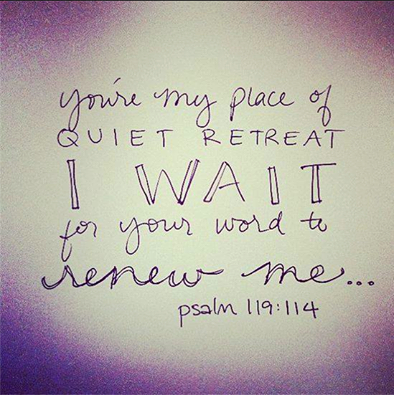 you're my place of
QUIET RETREAT
I WAIT
for your word to
renew me...
psalm 119:114